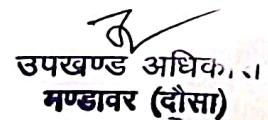 उपखण्ड अधिका
मण्डावर (दौसा)